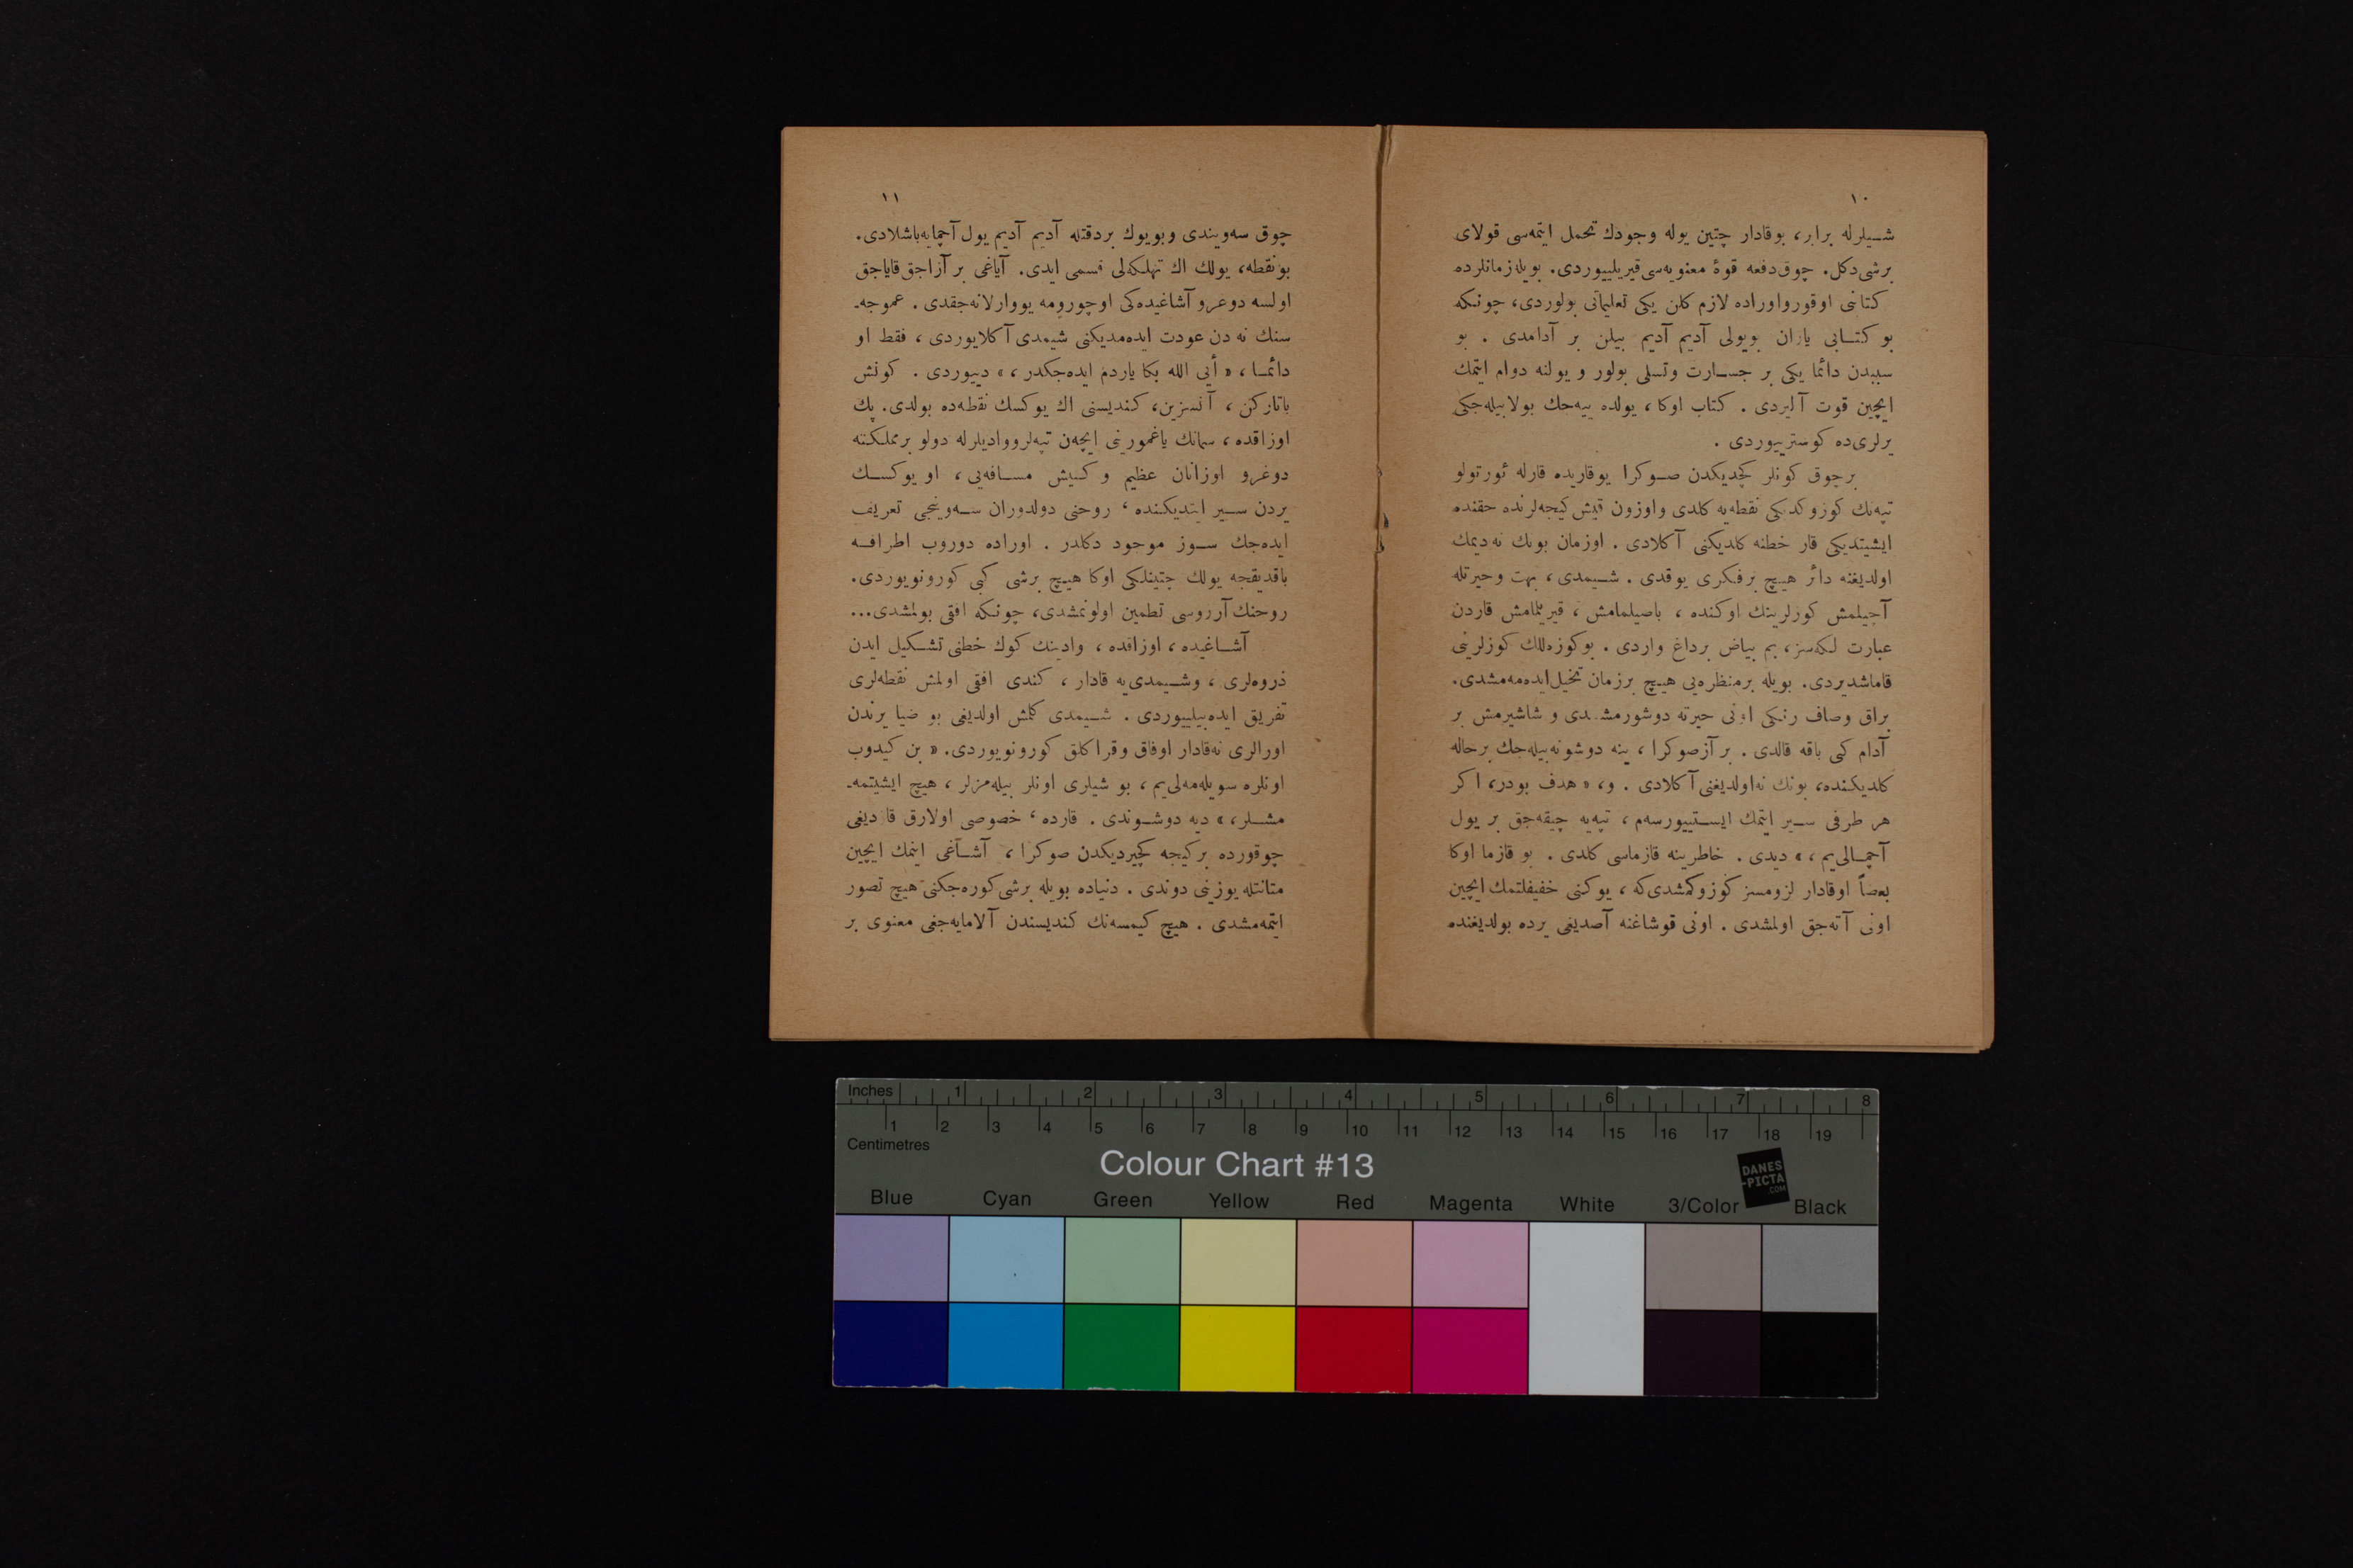 ١٠
شـيلرله برابر، بوقادار چتين يوله وجودك تحمل ايتمه‌سى قولاى
برشى‌دكل. چوق‌دفعه قوهٔ معنويه‌سى‌قيريلييوردى. بويله‌زمانلرده
كتابى اوقورواوراده لازم كلن يكى تعليماتى بولوردى، چونكه
بو كتـابى يازان بويولى آديم آديم بيلن بر آدامدى . بو
سببدن دائما يكى بر جسـارت وتسلى بولور و يولنه دوام ايتمك
ايچين قوت آليردى . كتاب اوكا ، يولده ييه‌جك بولابيله‌جكى
يرلرى‌ده كوسترييوردى .
برچوق كونلر كچديكدن صـوكرا يوقاريده قارله ئورتولو
تپه‌نك كوزوكديكى نقطه‌يه كلدى واوزون قيش كيجه‌لرنده حقنده
ايشيتديكى قار خطنه كلديكنى آكلادى . اوزمان بونك نه ديمك
اولديغنه دائر هيـچ برفكرى يوقدى . شـيمدى ، بهت وحيرتله
آچيلمش كوزلرينك اوكنده ، باصيلمامش ، قيريلمامش قاردن
عبارت لكه‌سز، بم بياض برداغ واردى . بوكوزه‌للك كوزلرينى
قاماشديردى. بويله برمنظره‌يى هيـچ برزمان تخيل‌ايده‌مه‌مشدى.
براق وصاف رنكى اونى حيرته دوشورمشـدى و شاشيرمش بر
آدام كبى باقه قالدى . بر آزصوكرا ، ينه دوشونه‌بيله‌جك برحاله
كلديكنده، بونك نه‌اولديغنى آكلادى . و، « هدف بودر، اكر
هر طرفى سـير ايتمك ايسـتييورسه‌م ، تپه‌يه چيقه‌جق بر يول
آچمـالى‌يم ، » ديدى . خاطرينه قازماسى كلدى . بو قازما اوكا
بعضاً اوقادار لزومسز كوزوكمشدى‌كه ، يوكنى خفيفلتمك ايچين
اونى آته‌جق اولمشدى . اونى قوشاغنه آصديغى يرده بولديغنده
١١
چوق سه‌ويندى وبويوك بردقتله آديم آديم يول آچمايه‌باشلادى.
بونقطه، يولك اك تهلكه‌لى قسمى ايدى. آياغى بر آزاجق قاياجق
اولسه دوغرو آشاغيده‌كى اوچورومه يووارلانه‌جقدى . عموجه‌ـ
سنك نه دن عودت ايده‌مديكنى شيمدى آكلايوردى ، فقط او
دائمـا ، « أيى الله بكا ياردم ايده‌جكدر ، » دييوردى . كونش
باتاركن ، آنسزين، كنديسنى اك يوكسك نقطه‌ده بولدى. پك
اوزاقده ، سمانك ياغمورينى ايچه‌ن تپه‌لرووادیلرله دولو برمملكتنه
دوغرو اوزانان عظيم وكنيش مسـافه‌يى ، او يوكسـك
يردن سـير ايتديكنده ، روحنى دولدوران سـه‌وينجى تعريف
ايده‌جك سـوز موجود دكلدر . اوراده دوروب اطرافـه
باقديقجه يولك چتينلكى اوكا هيـچ برشى كبى كورونويوردى.
روحنك آرزوسى تطمين اولونمشدى، چونكه افقى بولمشدى...
آشـاغيده ، اوزاقده ، وادينك كوك خطنى تشـكيل ايدن
ذروه‌لرى ، وشـيمدى‌يه قادار ، كندى افقى اولمش نقطه‌لرى
تفريق ايده‌بيلييوردى . شـيمدى كلمش اولديغى بو ضيا يرندن
اورالرى نه‌قادار اوفاق وقراكلق كورونويوردى. « بن كيدوب
اونلره سويله‌مه‌لى‌يم ، بو شيلرى اونلر بيله‌مزلر ، هيچ ايشيتمه‌ـ
مشـلر، » ديه دوشـوندى . قارده ، خصوصى اولارق قا ديغى
چوقورده بركيجه كچيرديكدن صوكرا ، آشـآغى اينمك ايچين
متانتله يوزينى دوندى . دنياده بويله برشى كوره‌جكنى هيچ تصور
ايتمه‌مشدى . هيچ كيمسه‌نك كنديسندن آلامايه‌جغى معنوى بر
Inches 1 2 3 4 5 6 7 8
1 2 3 4 5 6 7 8 9 10 11 12 13 14 15 16 17 18 19
Centimetres
Colour Chart #13
DANES
-PICTA
.COM
Blue Cyan Green Yellow Red Magenta White 3/Color Black